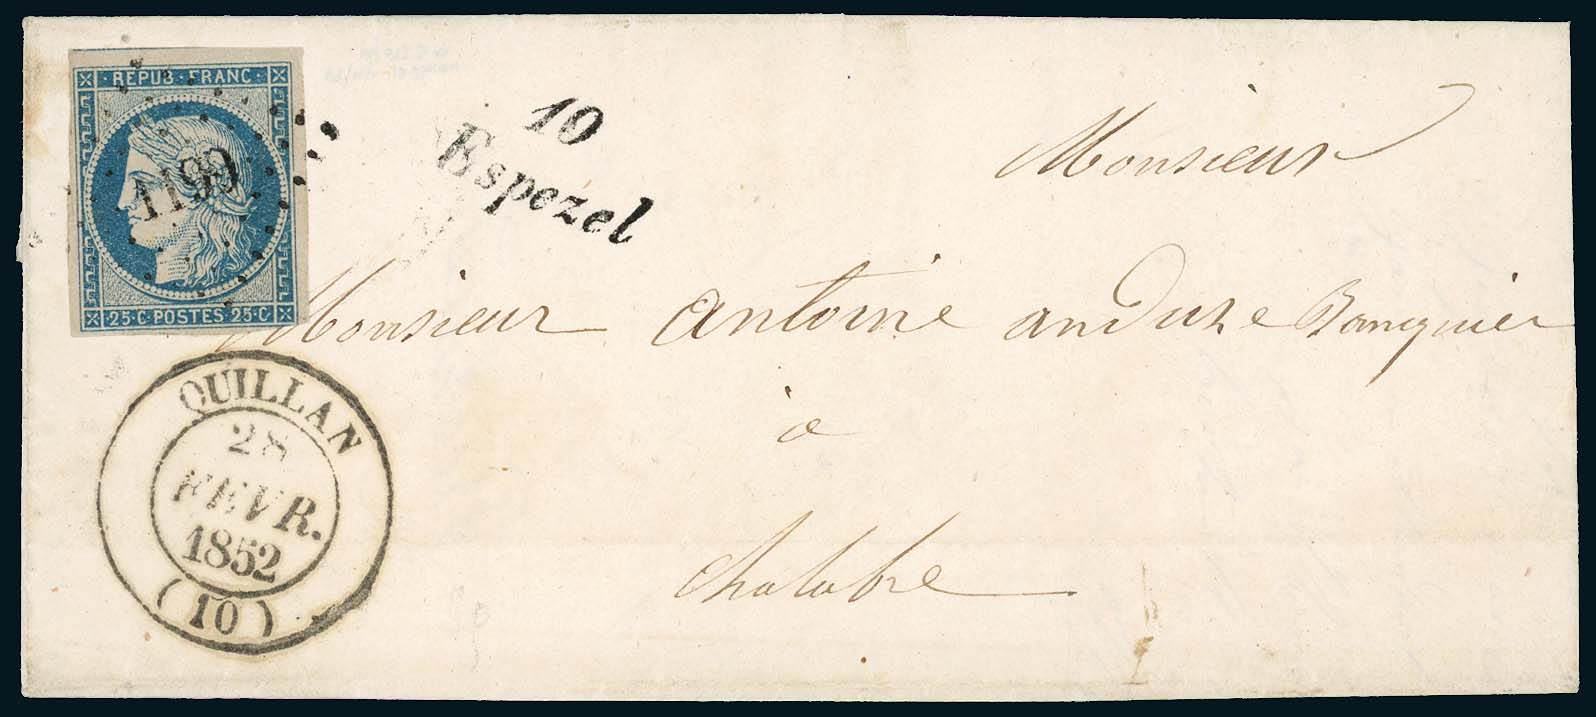 REPUB · FRANC ·
1199
25 · C · POSTES 25 · C
10
Espezel
Monsieur
Monsieur antoine anduze Banquier
à
chalabre
QUILLAN
28
FEVR.
1852
(10)